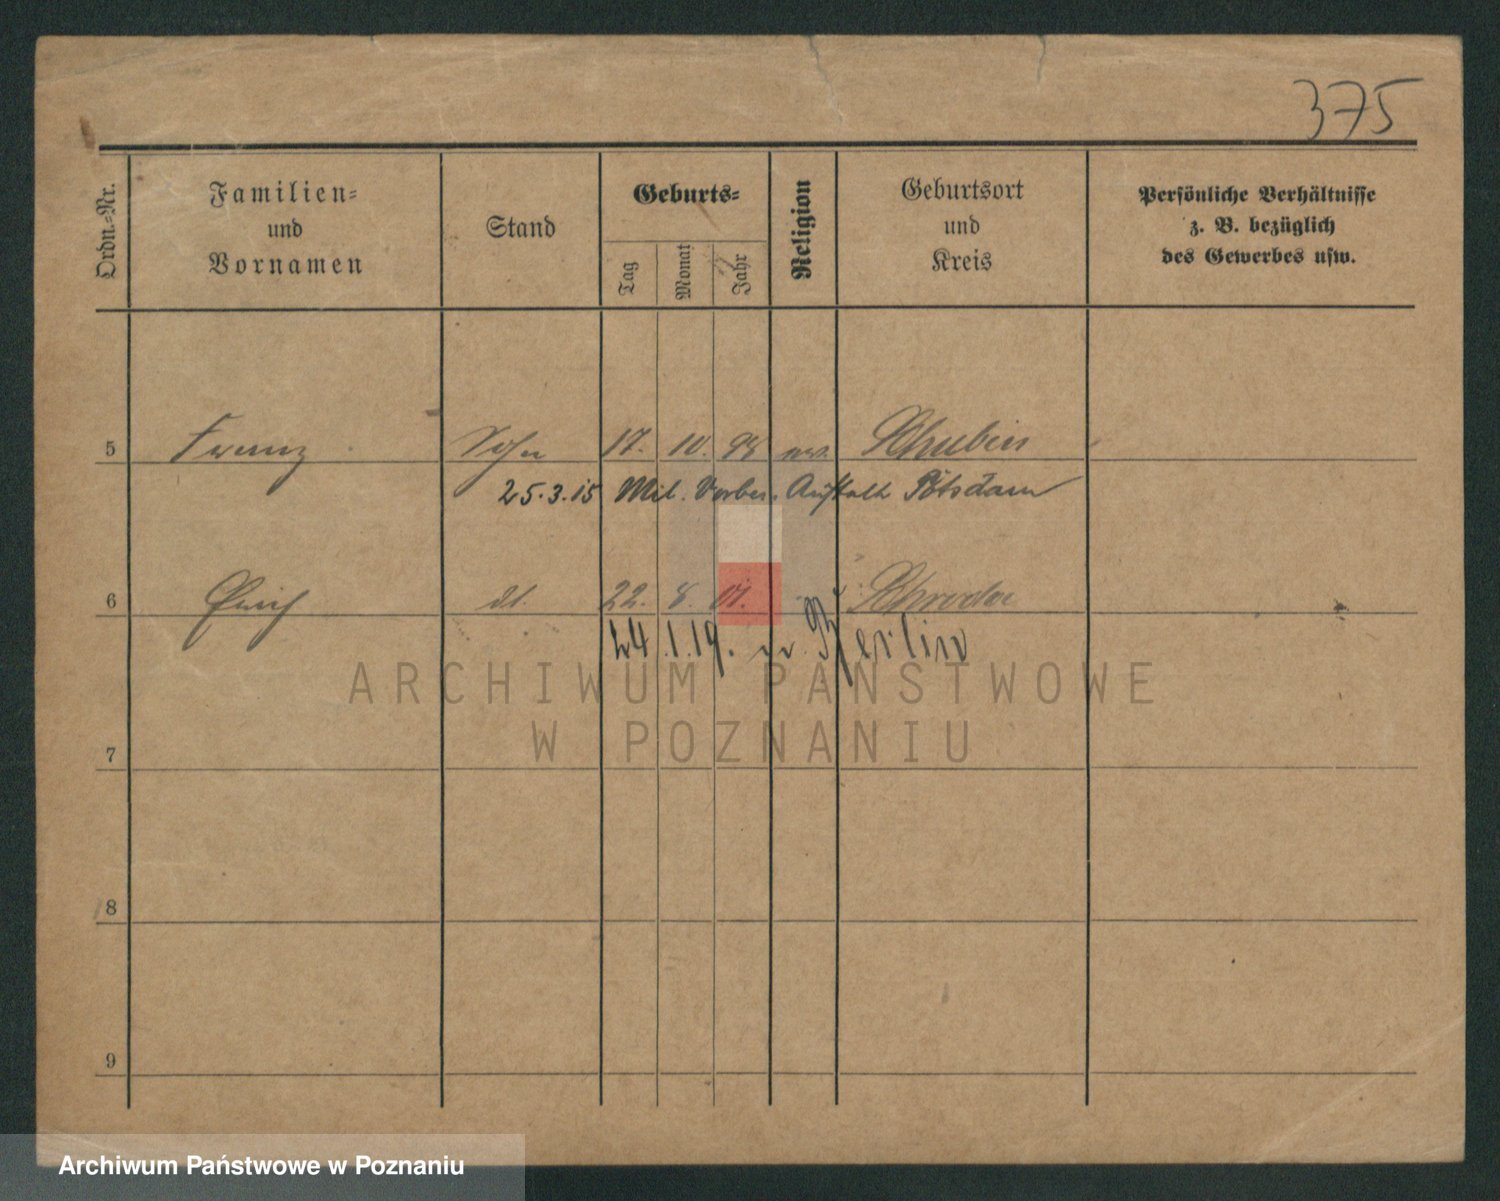 375
Ordn.-Nr.
Familien-
und
Vornamen
Stand
Geburts-
Tag
Monat
Jahr
Religion
Geburtsort
und
Kreis
Persönliche Verhältnisse
z. B. bezüglich
des Gewerbes usw.
5 Franz Sohn 17. 10. 98 ev. Schubin
25.3.15 Mil. Vorber. Anstalt Potsdam
6 Erich dt. 22. 8. 01. Schroda
24.1.19. Berlin
ARCHIWUM PAŃSTWOWE
W POZNANIU
7
8
9
Archiwum Państwowe w Poznaniu